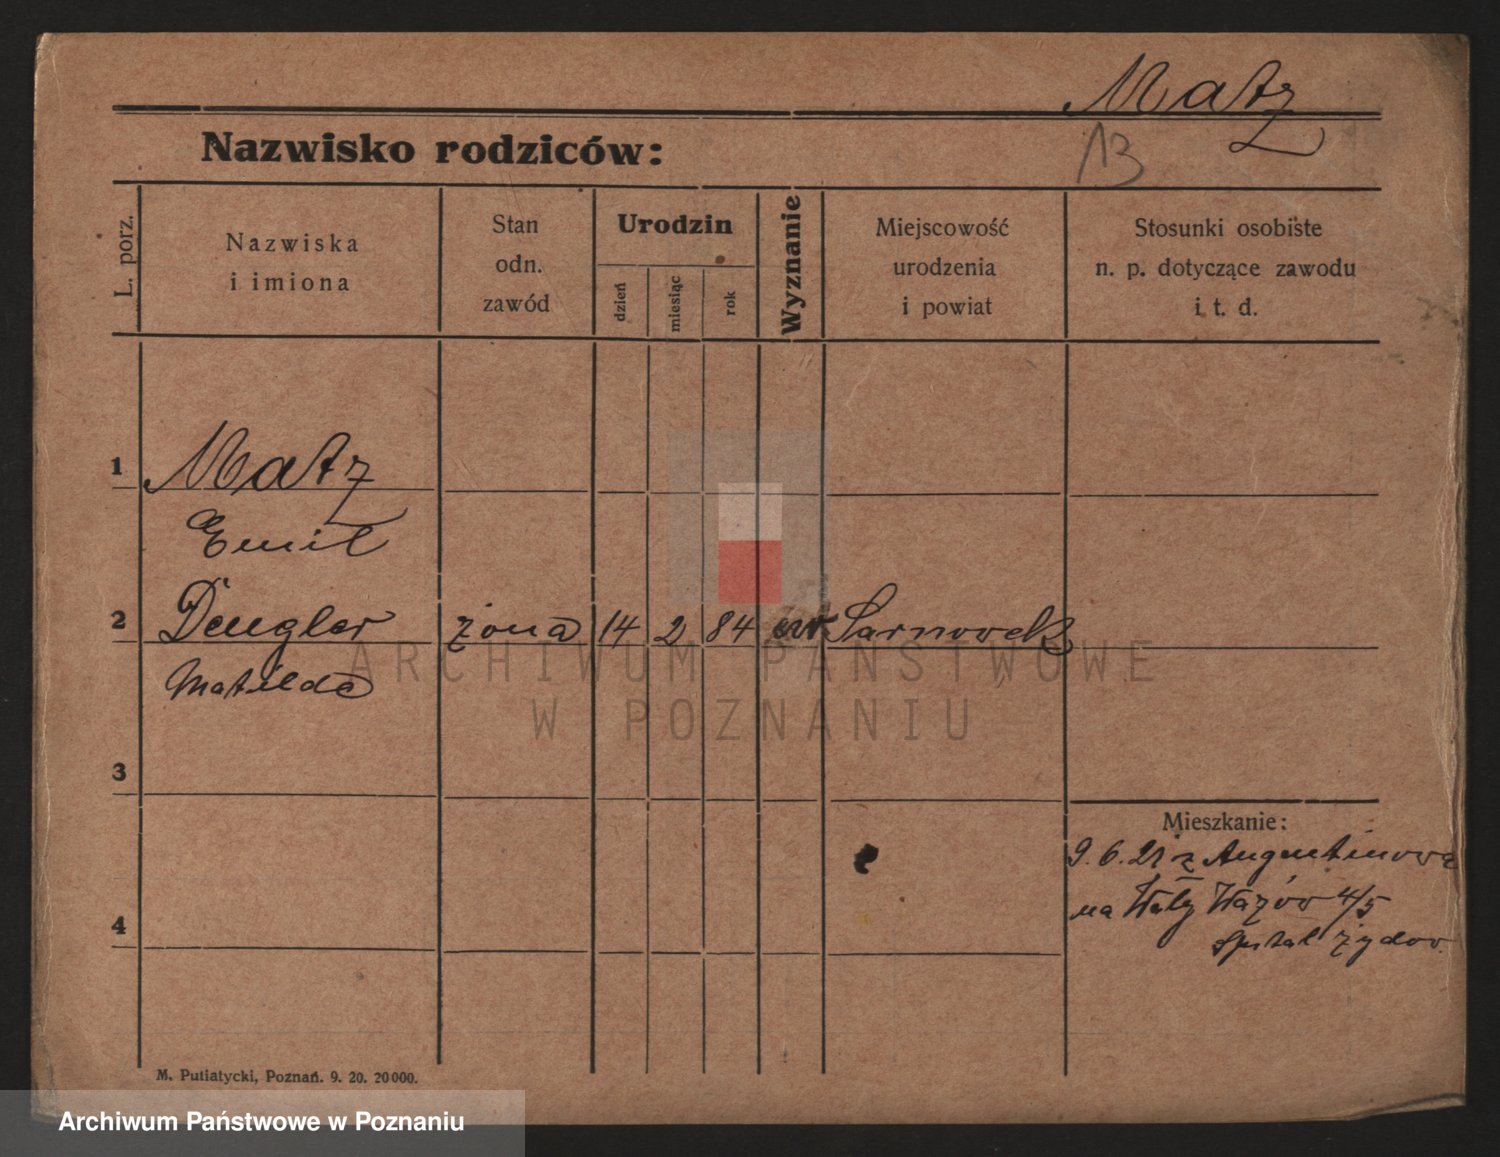 Matz
13
Nazwisko rodziców:
L. porz.
Nazwiska
i imiona
Stan
odn.
zawód
Urodzin
dzień
miesiąc
rok
Wyznanie
Miejscowość
urodzenia
i powiat
Stosunki osobiste
n. p. dotyczące zawodu
i. t. d.
1 Matz
Emil
2 Dengler żona 14 2 84 ew Sarnowek
Matilda
ARCHIWUM PAŃSTWOWE
W POZNANIU
3
Mieszkanie:
9.6.21 z Augustinowa
na Wały Wazów 4/5
4
szpital żydow.
M. Putiatycki, Poznań. 9. 20. 20000.
Archiwum Państwowe w Poznaniu